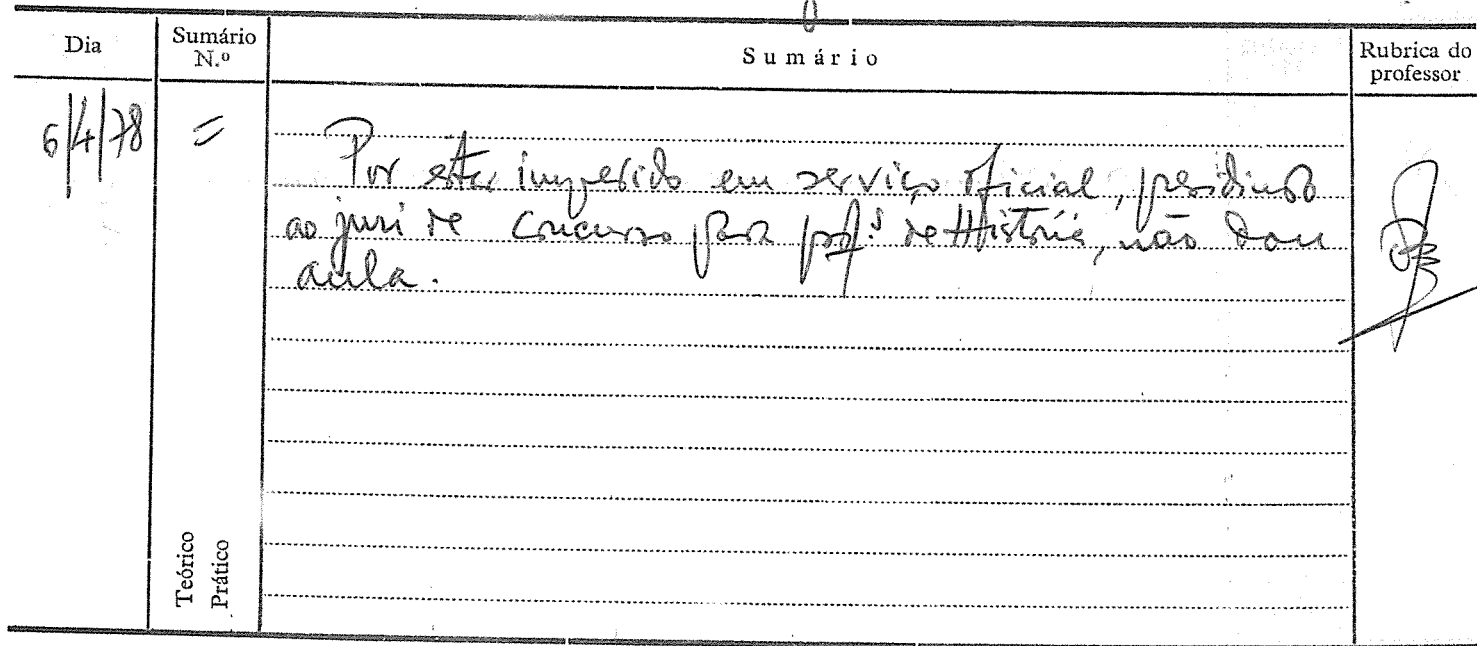 Dia
Sumário
N.º
Sumário
Rubrica do
professor
6/4/78
=
Por estar impedido em serviço oficial, presidindo
ao juri de concurso para prof.s de História, não dou
aula.
Teórico
Prático